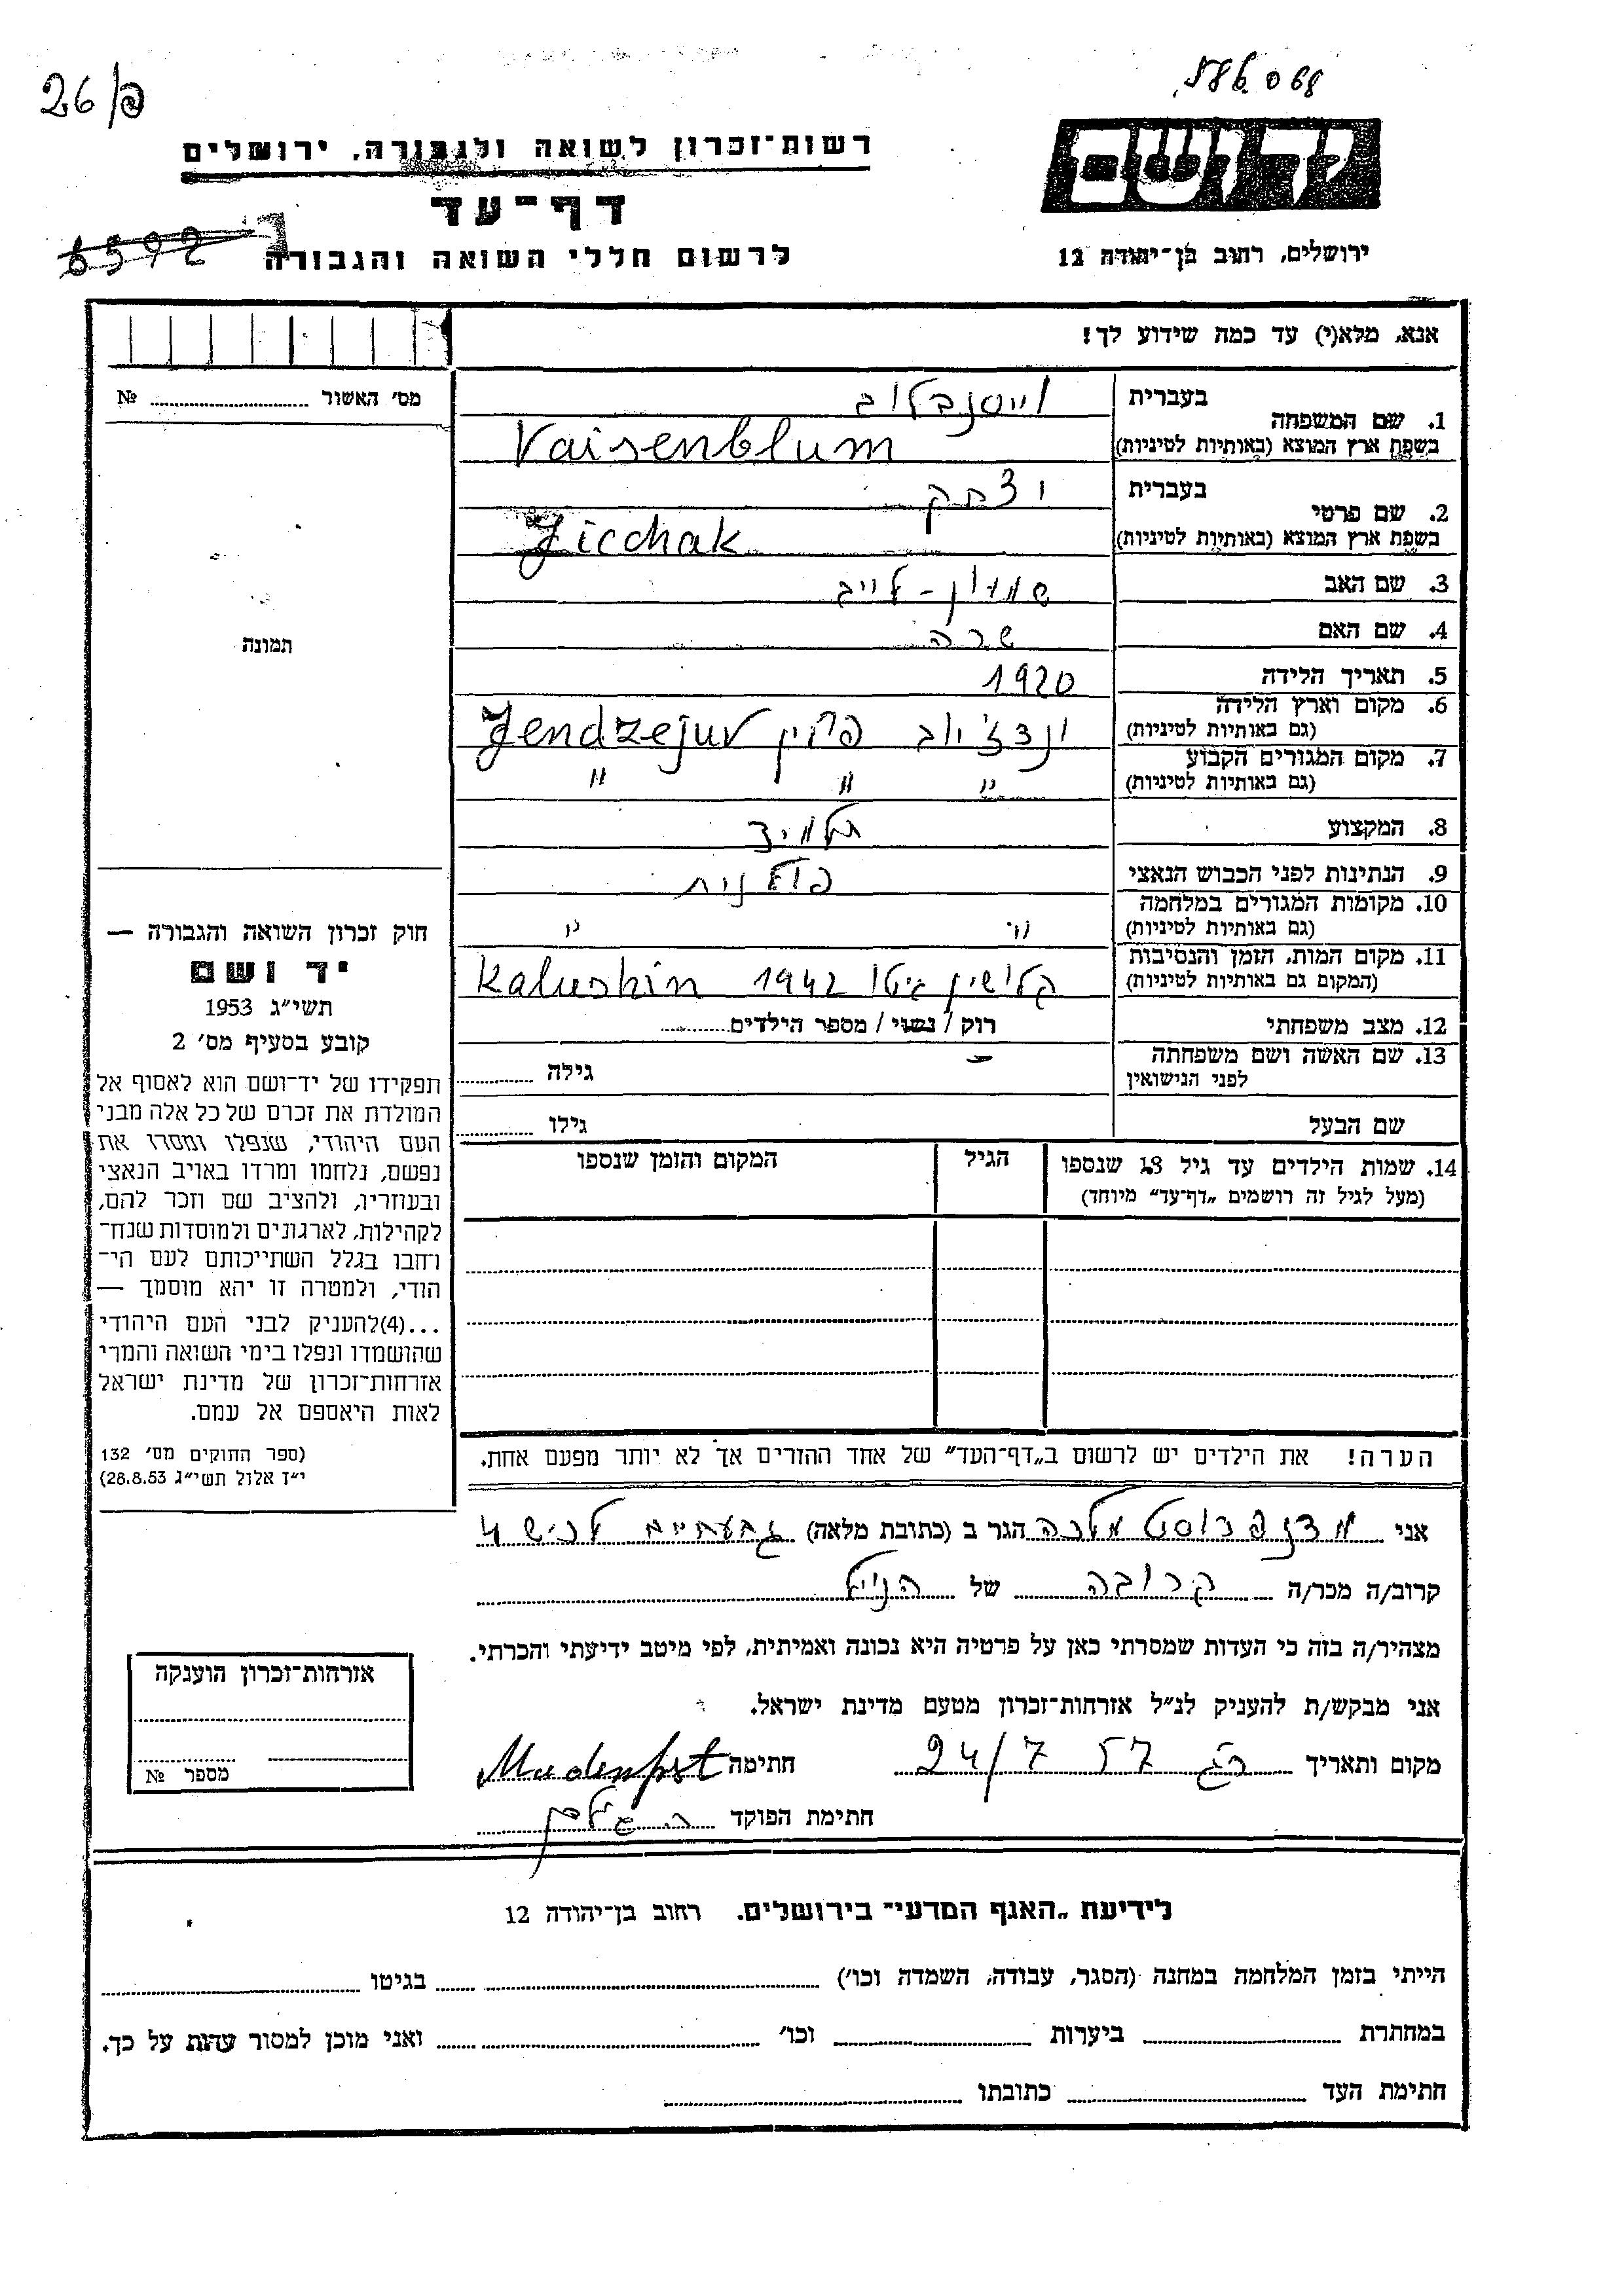 26/פ
רשות־זכרון לשואה ולגבורה, ירושלים
דף־עד
לרשום חללי השואה והגבורה
6592
יד ושם
ירושלים, רחוב בן־יהודה 12
אנא, מלא(י) עד כמה שידוע לך!
מס׳ האשור № 
1. שם המשפחה בעברית
בשפת ארץ המוצא (באותיות לטיניות)
Vaisenblum
2. שם פרטי בעברית יצחק
בשפת ארץ המוצא (באותיות לטיניות) Jicchak
3. שם האב שמעון-לייב
4. שם האם שרה
5. תאריך הלידה 1920
6. מקום וארץ הלידה
(גם באותיות לטיניות) פולין Jendzejuv
7. מקום המגורים הקבוע
(גם באותיות לטיניות) " " "
8. המקצוע תלמיד
9. הנתינות לפני הכבוש הנאצי פולנית
10. מקומות המגורים במלחמה
(גם באותיות לטיניות) " "
11. מקום המות, הזמן והנסיבות
(המקום גם באותיות לטיניות) קלושין גיטו 1942 Kalushin
12. מצב משפחתי רוק / נשוי / מספר הילדים
13. שם האשה ושם משפחתה
לפני הנישואין - גילה
שם הבעל גילו
14. שמות הילדים עד גיל 18 שנספו הגיל המקום והזמן שנספו
(מעל לגיל זה רושמים „דף־עד” מיוחד)
הערה! את הילדים יש לרשום ב„דף־העד” של אחד ההורים אך לא יותר מפעם אחת.
תמונה
חוק זכרון השואה והגבורה —
יד ושם
תשי״ג 1953
קובע בסעיף מס׳ 2
תפקידו של יד־ושם הוא לאסוף אל
המולדת את זכרם של כל אלה מבני
העם היהודי, שנפלו ומסרו את
נפשם, נלחמו ומרדו באויב הנאצי
ובעוזריו, ולהציב שם וזכר להם,
לקהילות, לארגונים ולמוסדות שנח־
רחבו בגלל השתייכותם לעם הי־
הודי, ולמטרה זו יהא מוסמך —
...(4)להעניק לבני העם היהודי
שהושמדו ונפלו בימי השואה והמרי
אזרחות־זכרון של מדינת ישראל
לאות היאספם אל עמם.
(ספר החוקים מס׳ 132
י״ז אלול תשי״ג 28.8.53)
אני מלכה הגר ב (כתובת מלאה) גבעתיים לכיש 4
קרוב/ה מכר/ה קרובה של הנ״ל
מצהיר/ה בזה כי העדות שמסרתי כאן על פרטיה היא נכונה ואמיתית, לפי מיטב ידיעתי והכרתי.
אני מבקש/ת להעניק לנ״ל אזרחות־זכרון מטעם מדינת ישראל.
מקום ותאריך רג 24/7 57 חתימה
חתימת הפוקד
אזרחות־זכרון הוענקה
מספר №
לידיעת „האגף המדעי” בירושלים. רחוב בן־יהודה 12
הייתי בזמן המלחמה במחנה (הסגר, עבודה, השמדה וכו׳) בגיטו
במחתרת ביערות וכו׳ ואני מוכן למסור עדות על כך.
חתימת העד כתובתו